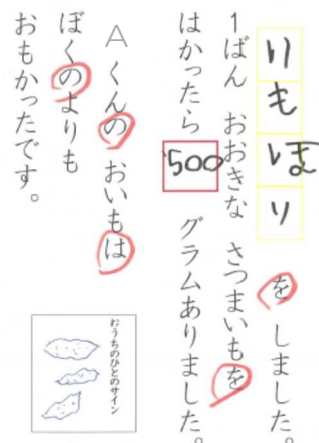 いもほり をしました。
1ばん おおきな さつまいもを
はかったら 500 グラムありました。
Aくんの おいもは
ぼくのよりも
おもかったです。
おうちのひとのサイン